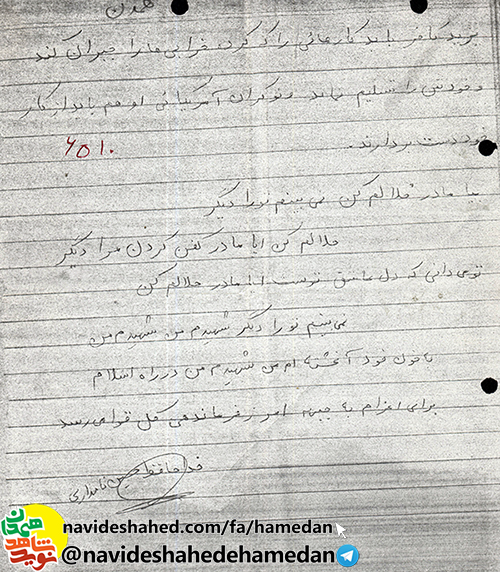 هدن
یزید کافر باید کارهائی را که کرده خرابی ما را جبران کند
و خودش را تسلیم نماید و نوکران آمریکائی او هم باید از کار
خود دست بردارند.
۶۵۱۰
بیا مادر حلالم کن نمی بینم تو را دیگر
حلالم کن ایا مادر کفن کردن مرا دیگر
تو می دانی که دل عاشق توست ایا مادر حلالم کن
نمی بینم تو را دیگر شهیدم من شهیدم من
با خون خود آغشته ام من شهیدم من در راه اسلام
برای اعزام به جبهه امر ز فرماندهی کل قوا می رسد
خداحافظ حسین نامداری
همدان
نوید شاهد
navideshahed.com/fa/hamedan
@navideshahedehamedan